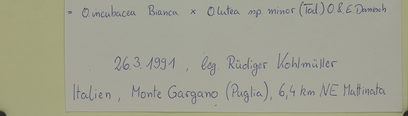 = O. incubacea Bianca x O. lutea ssp. minor (Tod.) O. & E. Danesch
26.3.1991, leg. Rüdiger Kohlmüller
Italien, Monte Gargano (Puglia), 6,4 km NE Mattinata